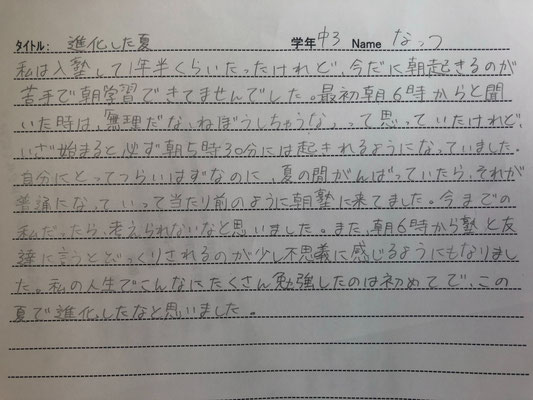 タイトル: 進化した夏 学年 中3 Name なっつ
私は入塾して1年半くらいたったけれど、今だに朝起きるのが
苦手で朝学習できてませんでした。最初朝6時からと聞
いた時は、無理だな、ねぼうしちゃうな、って思っていたけれど、
いざ始まると必ず朝5時30分には起きれるようになっていました。
自分にとってつらいはずなのに、夏の間がんばっていたら、それが
普通になっていって当たり前のように朝塾に来てました。今までの
私だったら、考えられないなと思いました。また、朝6時から塾と友
達に言うとびっくりされるのが少し不思義に感じるようにもなりまし
た。私の人生でこんなにたくさん勉強したのは初めてで、この
夏で進化したなと思いました。